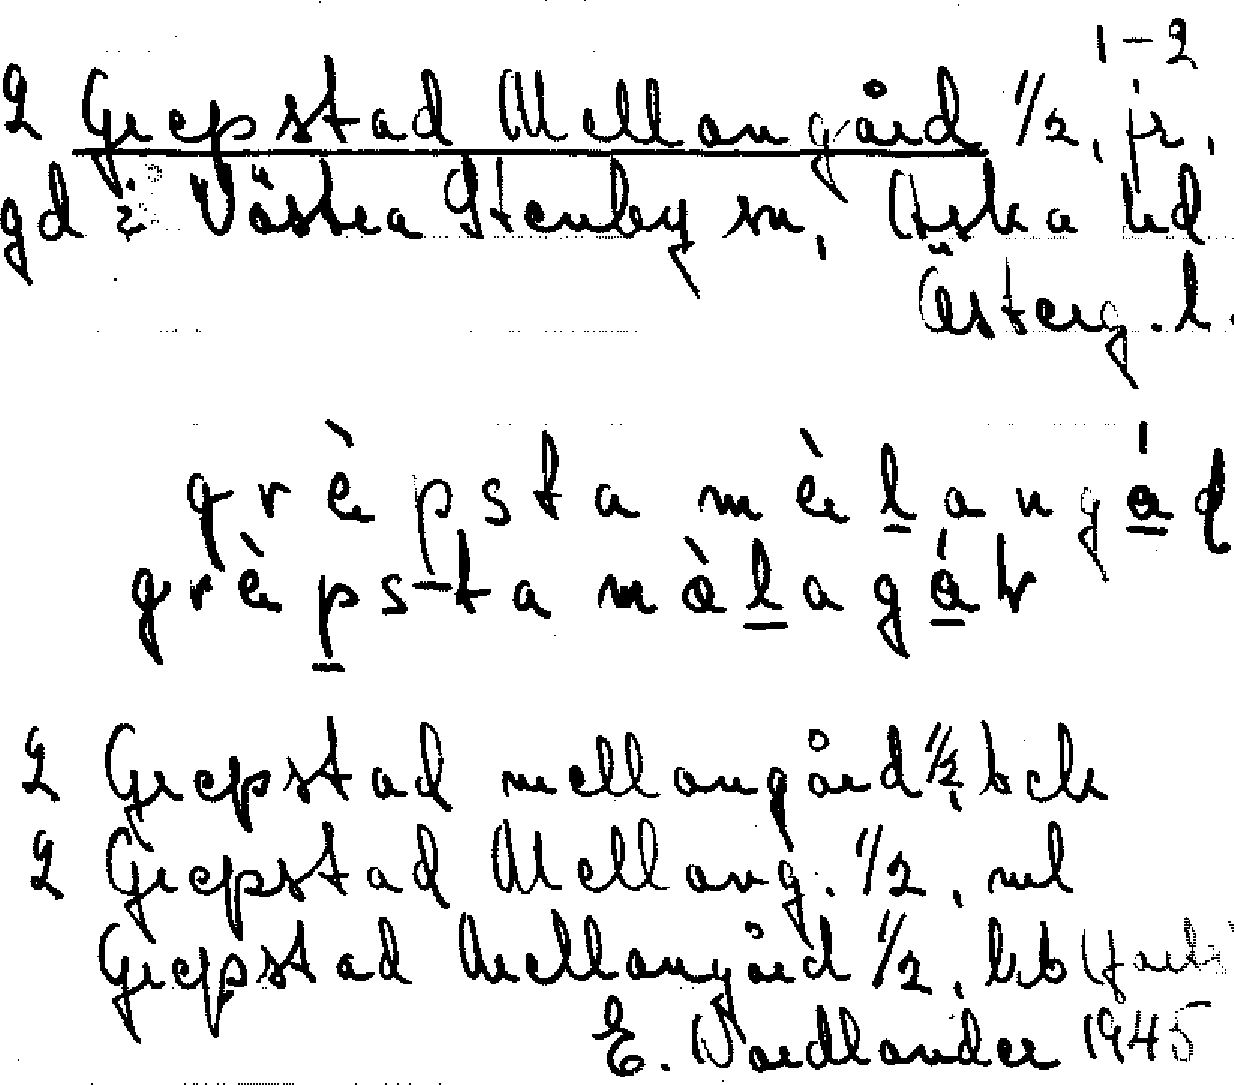 1-2
2 Grepstad Mellangård 1/2, jr,
gd i Västra Stenby sn, Aska hd
Österg. l.
grèpsta mèlangád
grèpsta mèlagár
2 Grepstad mellangård 1/2, bck
2 Grepstad Mellang. 1/2, ml
Grepstad Mellangård 1/2, hb
E. Wardlander 1945